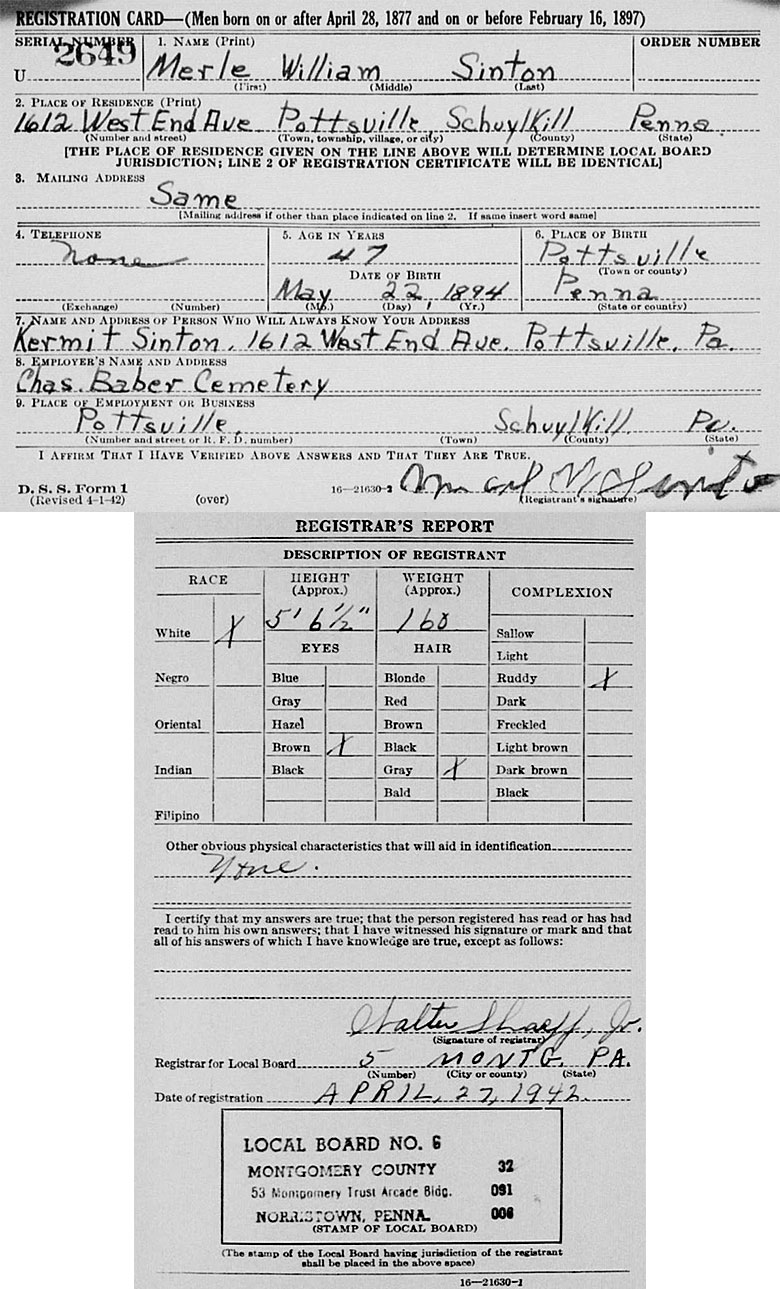 REGISTRATION CARD—(Men born on or after April 28, 1877 and on or before February 16, 1897)
SERIAL NUMBER 1. NAME (Print) ORDER NUMBER
U 2649 Merle William Sinton
(First) (Middle) (Last)
2. PLACE OF RESIDENCE (Print)
1612 West End Ave Pottsville, Schuylkill Penna
(Number and street) (Town, township, village, or city) (County) (State)
[THE PLACE OF RESIDENCE GIVEN ON THE LINE ABOVE WILL DETERMINE LOCAL BOARD
JURISDICTION; LINE 2 OF REGISTRATION CERTIFICATE WILL BE IDENTICAL]
3. MAILING ADDRESS
Same
[Mailing address if other than place indicated on line 2. If same insert word same]
4. TELEPHONE 5. AGE IN YEARS 6. PLACE OF BIRTH
None 47 Pottsville
(Town or county)
DATE OF BIRTH
May 22, 1894 Penna
(Exchange) (Number) (Mo.) (Day) (Yr.) (State or country)
7. NAME AND ADDRESS OF PERSON WHO WILL ALWAYS KNOW YOUR ADDRESS
Kermit Sinton, 1612 West End Ave. Pottsville, Pa.
8. EMPLOYER'S NAME AND ADDRESS
Chas. Baber Cemetery
9. PLACE OF EMPLOYMENT OR BUSINESS
Pottsville, Schuylkill Pa.
(Number and street or R. F. D. number) (Town) (County) (State)
I AFFIRM THAT I HAVE VERIFIED ABOVE ANSWERS AND THAT THEY ARE TRUE.
D. S. S. Form 1 16—21630-2 Sinton
(Revised 4-1-42) (over) (Registrant's signature)
REGISTRAR'S REPORT
DESCRIPTION OF REGISTRANT
RACE HEIGHT (Approx.) WEIGHT (Approx.) COMPLEXION
5' 6 1/2" 160
White X Sallow
EYES HAIR Light
Negro Blue Blonde Ruddy X
Gray Red Dark
Oriental Hazel Brown Freckled
Brown X Black Light brown
Indian Black Gray X Dark brown
Bald Black
Filipino
Other obvious physical characteristics that will aid in identification
None.
I certify that my answers are true; that the person registered has read or has had
read to him his own answers; that I have witnessed his signature or mark and that
all of his answers of which I have knowledge are true, except as follows:
Walter Shaeff, Jr.
(Signature of registrar)
Registrar for Local Board 5 MONTG. PA.
(Number) (City or county) (State)
Date of registration APRIL, 27, 1942.
LOCAL BOARD NO. 6
MONTGOMERY COUNTY 32
53 Montgomery Trust Arcade Bldg. 091
NORRISTOWN, PENNA. 006
(STAMP OF LOCAL BOARD)
(The stamp of the Local Board having jurisdiction of the registrant
shall be placed in the above space)
16—21630-1